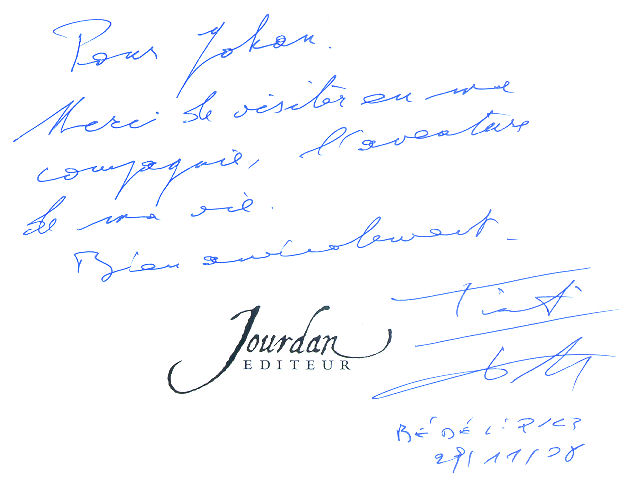 Pour Yohan.
Merci de visiter en ma
compagnie, l'aventure
de ma vie.
Bien amicalement.
Jourdan
EDITEUR
29/11/08